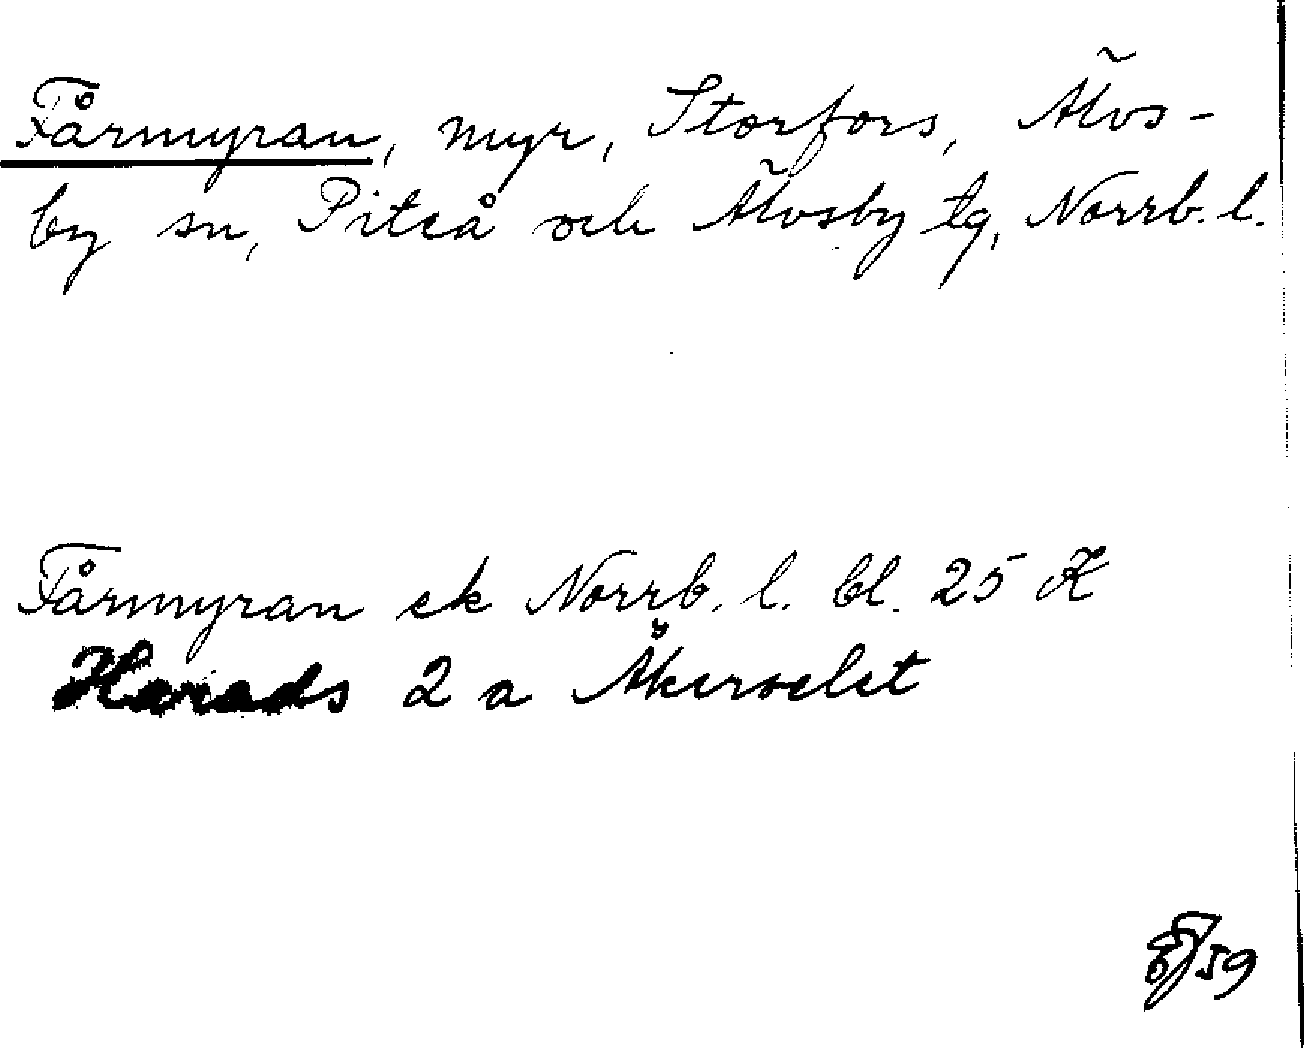 Fårmyran, myr, Storfors, Älvs-
by sn, Piteå och Älvsby tg, Norrb. l.
Fårmyran ek Norrb. l. bl. 25 K
Harads 2 a Åkerselet
59